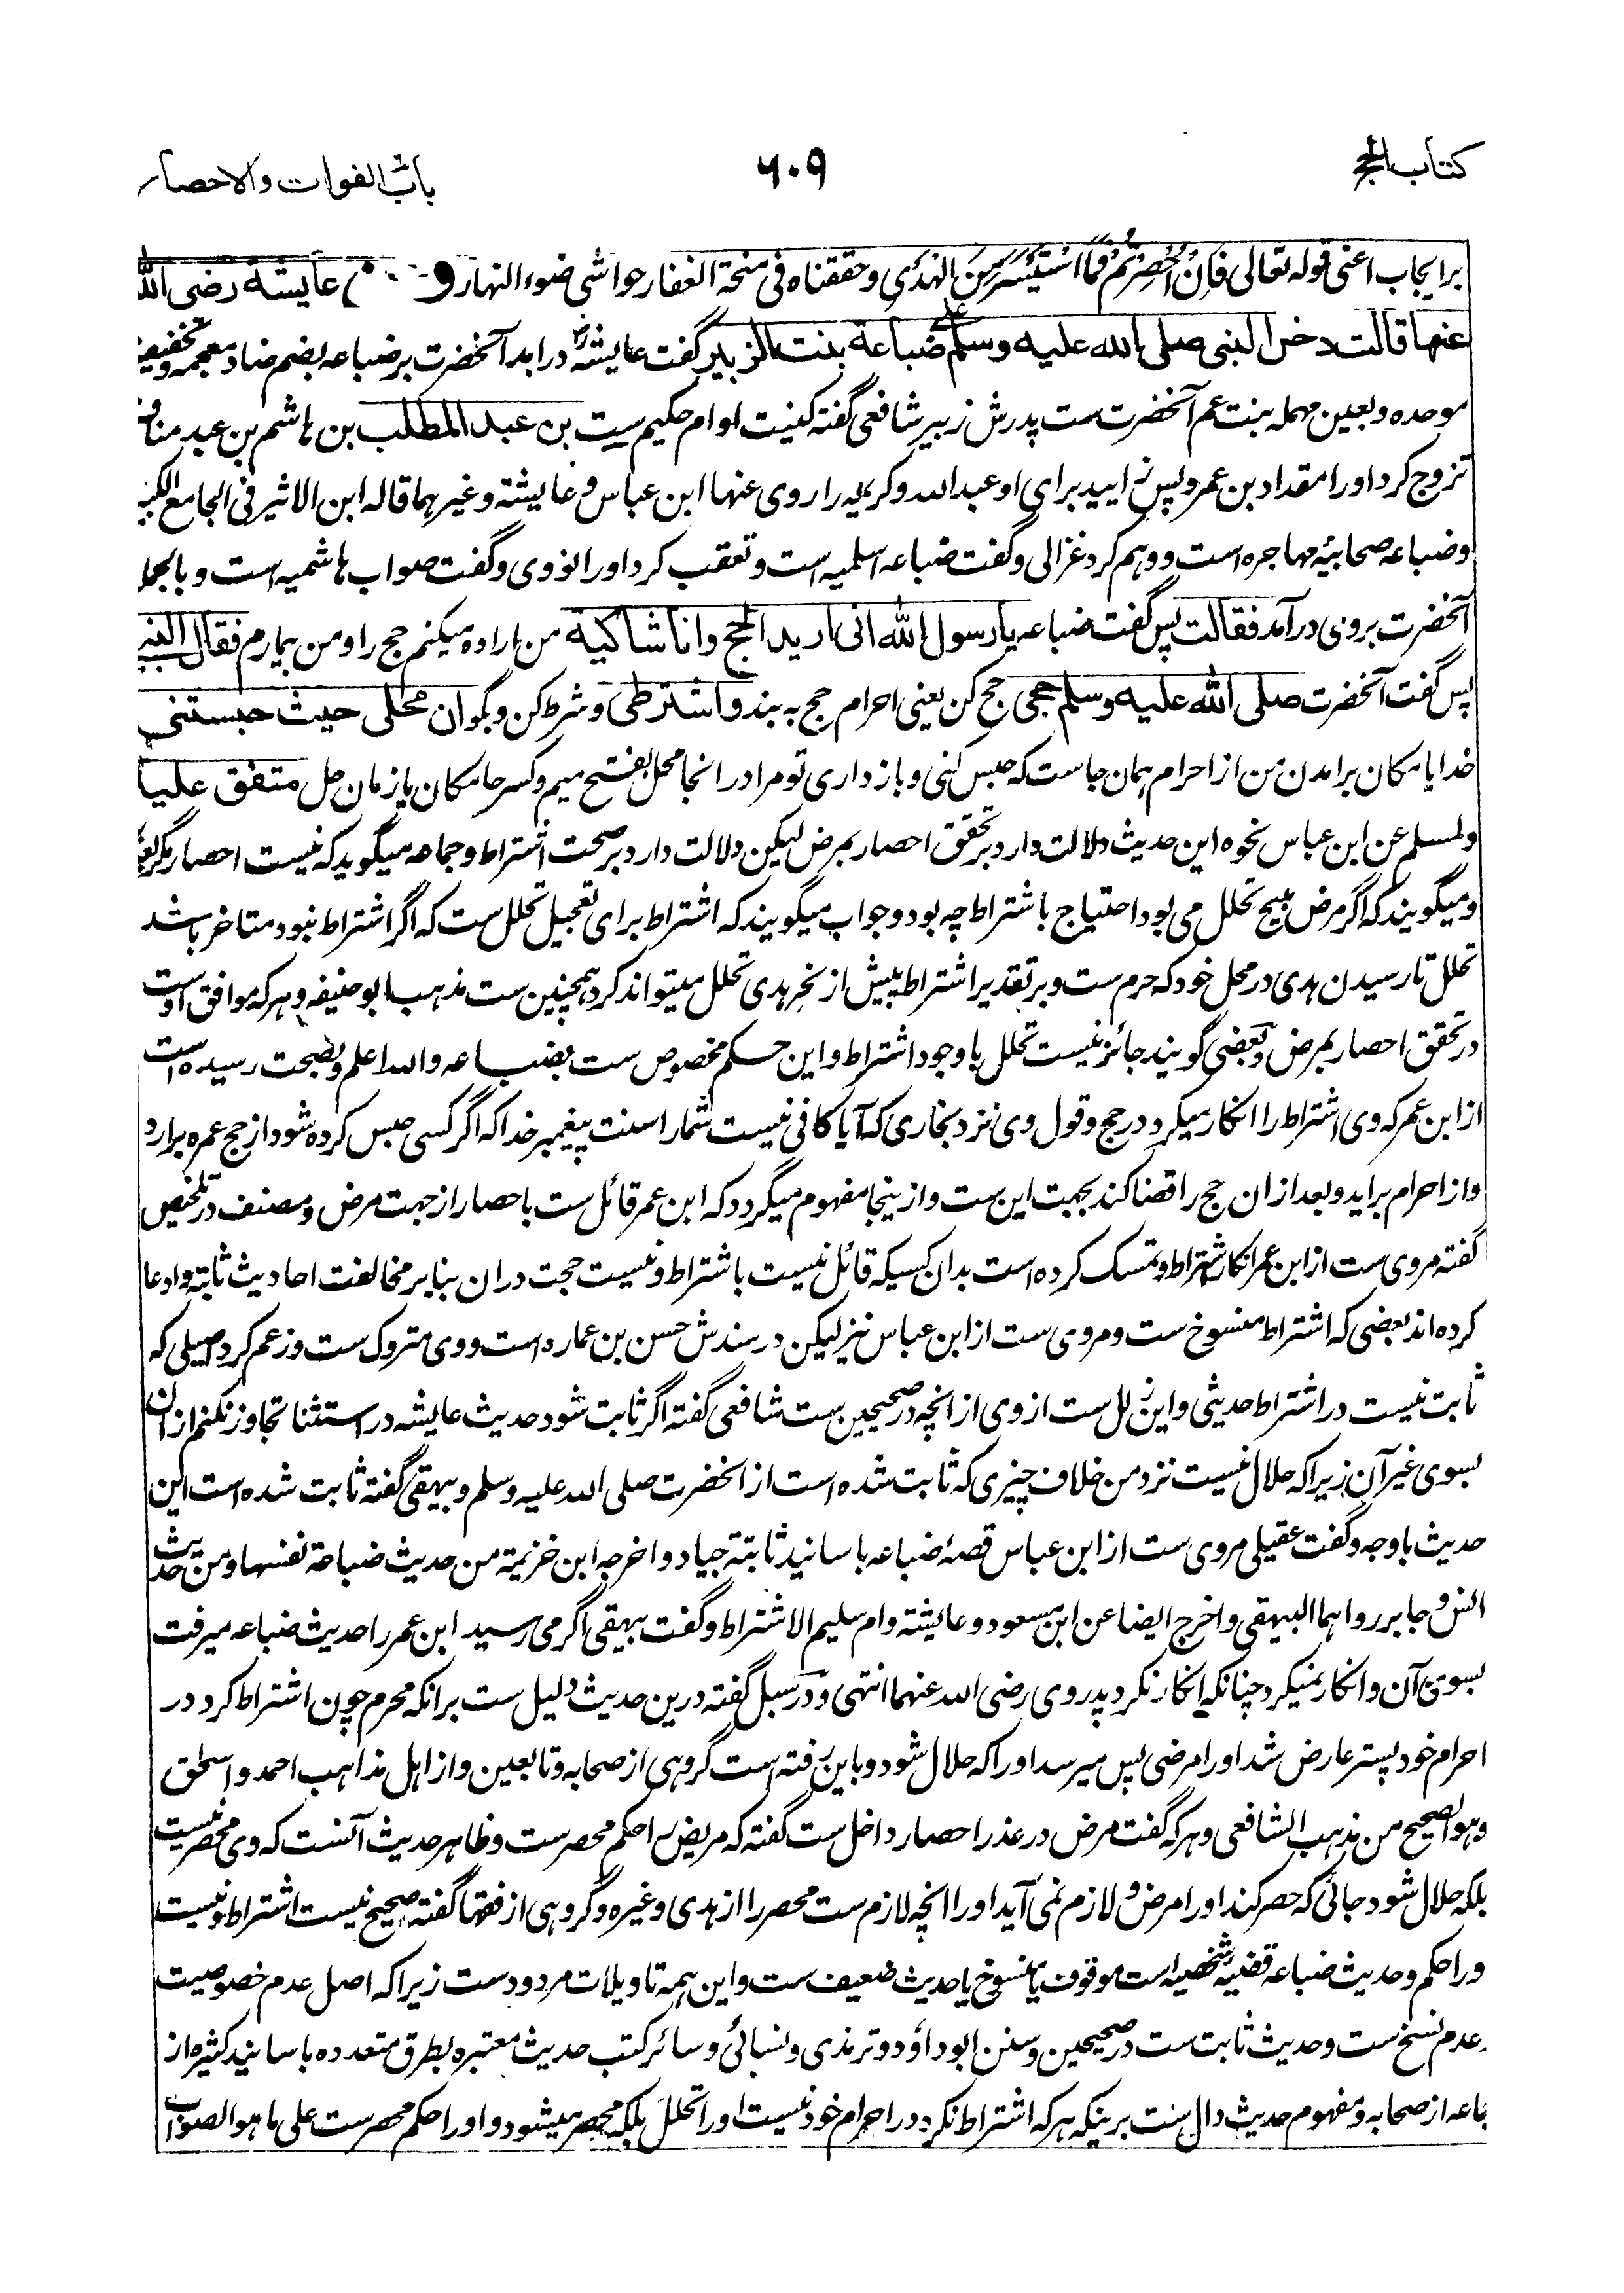 کتاب الحج
۶۰۹
باب الفوات والاحصار
برایجاب اعنی قوله تعالی فَاِنْ اُحْصِرْتُمْ فَمَا اسْتَیْسَرَ مِنَ الْهَدْیِ وحققناه فی منحة الغفار حواشی ضوء النهار و عایشة رضی الله
عنها قالت دخل النبی صلی الله علیه وسلم علی ضباعة بنت الزبیر گفت عایشه درامد آنحضرت بر ضباعه بضم ضاد معجمه وتخفیف
موحده وبعین مهمله بنت عم آنحضرت ست پدرش زبیر شافعی گفته کنیت او ام حکیم ست بن عبد المطلب بن هاشم بن عبد مناف
تزوج کرد او را مقداد بن عمرو پس زایید برای او عبدالله وکریمه را روی عنها ابن عباس وعایشة وغیرهما قاله ابن الاثیر فی الجامع الکبیر
وضباعه صحابیه مهاجره است ووهم کرد غزالی وگفت ضباعه اسلمیه است وتعقب کرد او را نووی وگفت صواب هاشمیه است وبالجمله
آنحضرت بروی درآمد فقالت پس گفت ضباعه یا رسول الله انی ارید الحج وانا شاکیة من اراده میکنم حج را ومن بیمارم فقال النبی
پس گفت آنحضرت صلی الله علیه وسلم حجی حج کن یعنی احرام حج به بند واشترطی وشرط کن وبگو ان محلی حیث حبستنی
خدایا مکان برامدن من از احرام همان جاست که حبس کنی وباز داری تو مرا در انجا محل بفتح میم وکسر حا مکان یا زمان حل متفق علیه
ولمسلم عن ابن عباس نحوه این حدیث دلالت دارد بر تحقق احصار بمرض لیکن دلالت دارد بر صحت اشتراط وجماعه میگوید که نیست احصار مگر بعدو
ومیگویند که اگر مرض مبیح تحلل می بود احتیاج باشتراط چه بود وجواب میگویند که اشتراط برای تعجیل تحلل ست که اگر اشتراط نبود متاخر باشد
تحلل تا رسیدن هدی در محل خود که حرم ست وبر تقدیر اشتراط پیش از نحر هدی تحلل میتواند کرد همچنین ست مذهب ابو حنیفه وهر که موافق اوست
در تحقق احصار بمرض وبعضی گویند جائز نیست تحلل با وجود اشتراط واین حکم مخصوص ست بضباعه والله اعلم وبصحت رسیده است
از ابن عمر که وی اشتراط را انکار میکرد در حج وقول وی نزد بخاری که آیا کافی نیست شما را سنت پیغمبر خدا که اگر کسی حبس کرده شود از حج عمره برارد
واز احرام براید وبعد ازان حج را قضا کند بجهت این ست وازینجا مفهوم میگردد که ابن عمر قائل ست باحصار از جهت مرض ومصنف در تلخیص
گفته مروی ست از ابن عمر انکار اشتراط وتمسک کرده است بدان کسیکه قائل نیست باشتراط ونیست حجت دران بنابر مخالفت احادیث ثابته وادعا
کرده اند بعضی که اشتراط منسوخ ست ومروی ست از ابن عباس نیز لیکن در سندش حسن بن عماره است ووی متروک ست وزعم کرد اصیلی که
ثابت نیست در اشتراط حدیثی واین زلل ست از وی از انچه در صحیحین ست شافعی گفته اگر ثابت شود حدیث عایشه در استثنا تجاوز نکنم ازان
بسوی غیر آن زیرا که حلال نیست نزد من خلاف چیزی که ثابت شده است از انحضرت صلی الله علیه وسلم وبیهقی گفته ثابت شده است این
حدیث باوجه وگفت عقیلی مروی ست از ابن عباس قصهٔ ضباعه باسانید ثابتة جیاد واخرجه ابن خزیمة من حدیث ضباعة نفسها ومن حدیث
انس وجابر رواهما البیهقی واخرج ایضا عن ابن مسعود وعایشة وام سلیم الاشتراط وگفت بیهقی اگر می رسید ابن عمر را حدیث ضباعه میرفت
بسوی آن وانکار نمیکرد چنانکه انکار نکرد پدر وی رضی الله عنهما انتهی ودر سبل گفته درین حدیث دلیل ست برانکه محرم چون اشتراط کرد در
احرام خود پستر عارض شد او را مرضی پس میرسد او را که حلال شود وباین رفته است گروهی از صحابه وتابعین واز اهل مذاهب احمد واسحق
وهو الصحیح من مذهب الشافعی وهر که گفت مرض در عذر احصار داخل ست گفته که مریض را حکم محصرست وظاهر حدیث آنست که وی محصر نیست
بلکه حلال شود جائی که حصر کند او را مرض ولازم نمی آید او را انچه لازم ست محصر را از هدی وغیره وگروهی از فقها گفته صحیح نیست اشتراط ونیست
ورا حکم وحدیث ضباعه قضیه شخصیه است موقوف یا منسوخ یا حدیث ضعیف ست واین همه تاویلات مردودست زیرا که اصل عدم خصوصیت
عدم نسخ ست وحدیث ثابت ست در صحیحین وسنن ابو داؤد وترمذی ونسائی وسائر کتب حدیث معتبره بطرق متعدده باسانید کثیره از
جماعه از صحابه ومفهوم حدیث دال ست برینکه هر که اشتراط نکرد در احرام خود نیست او را تحلل بلکه محصر میشود واو را حکم محصرست علی ما هو الصواب